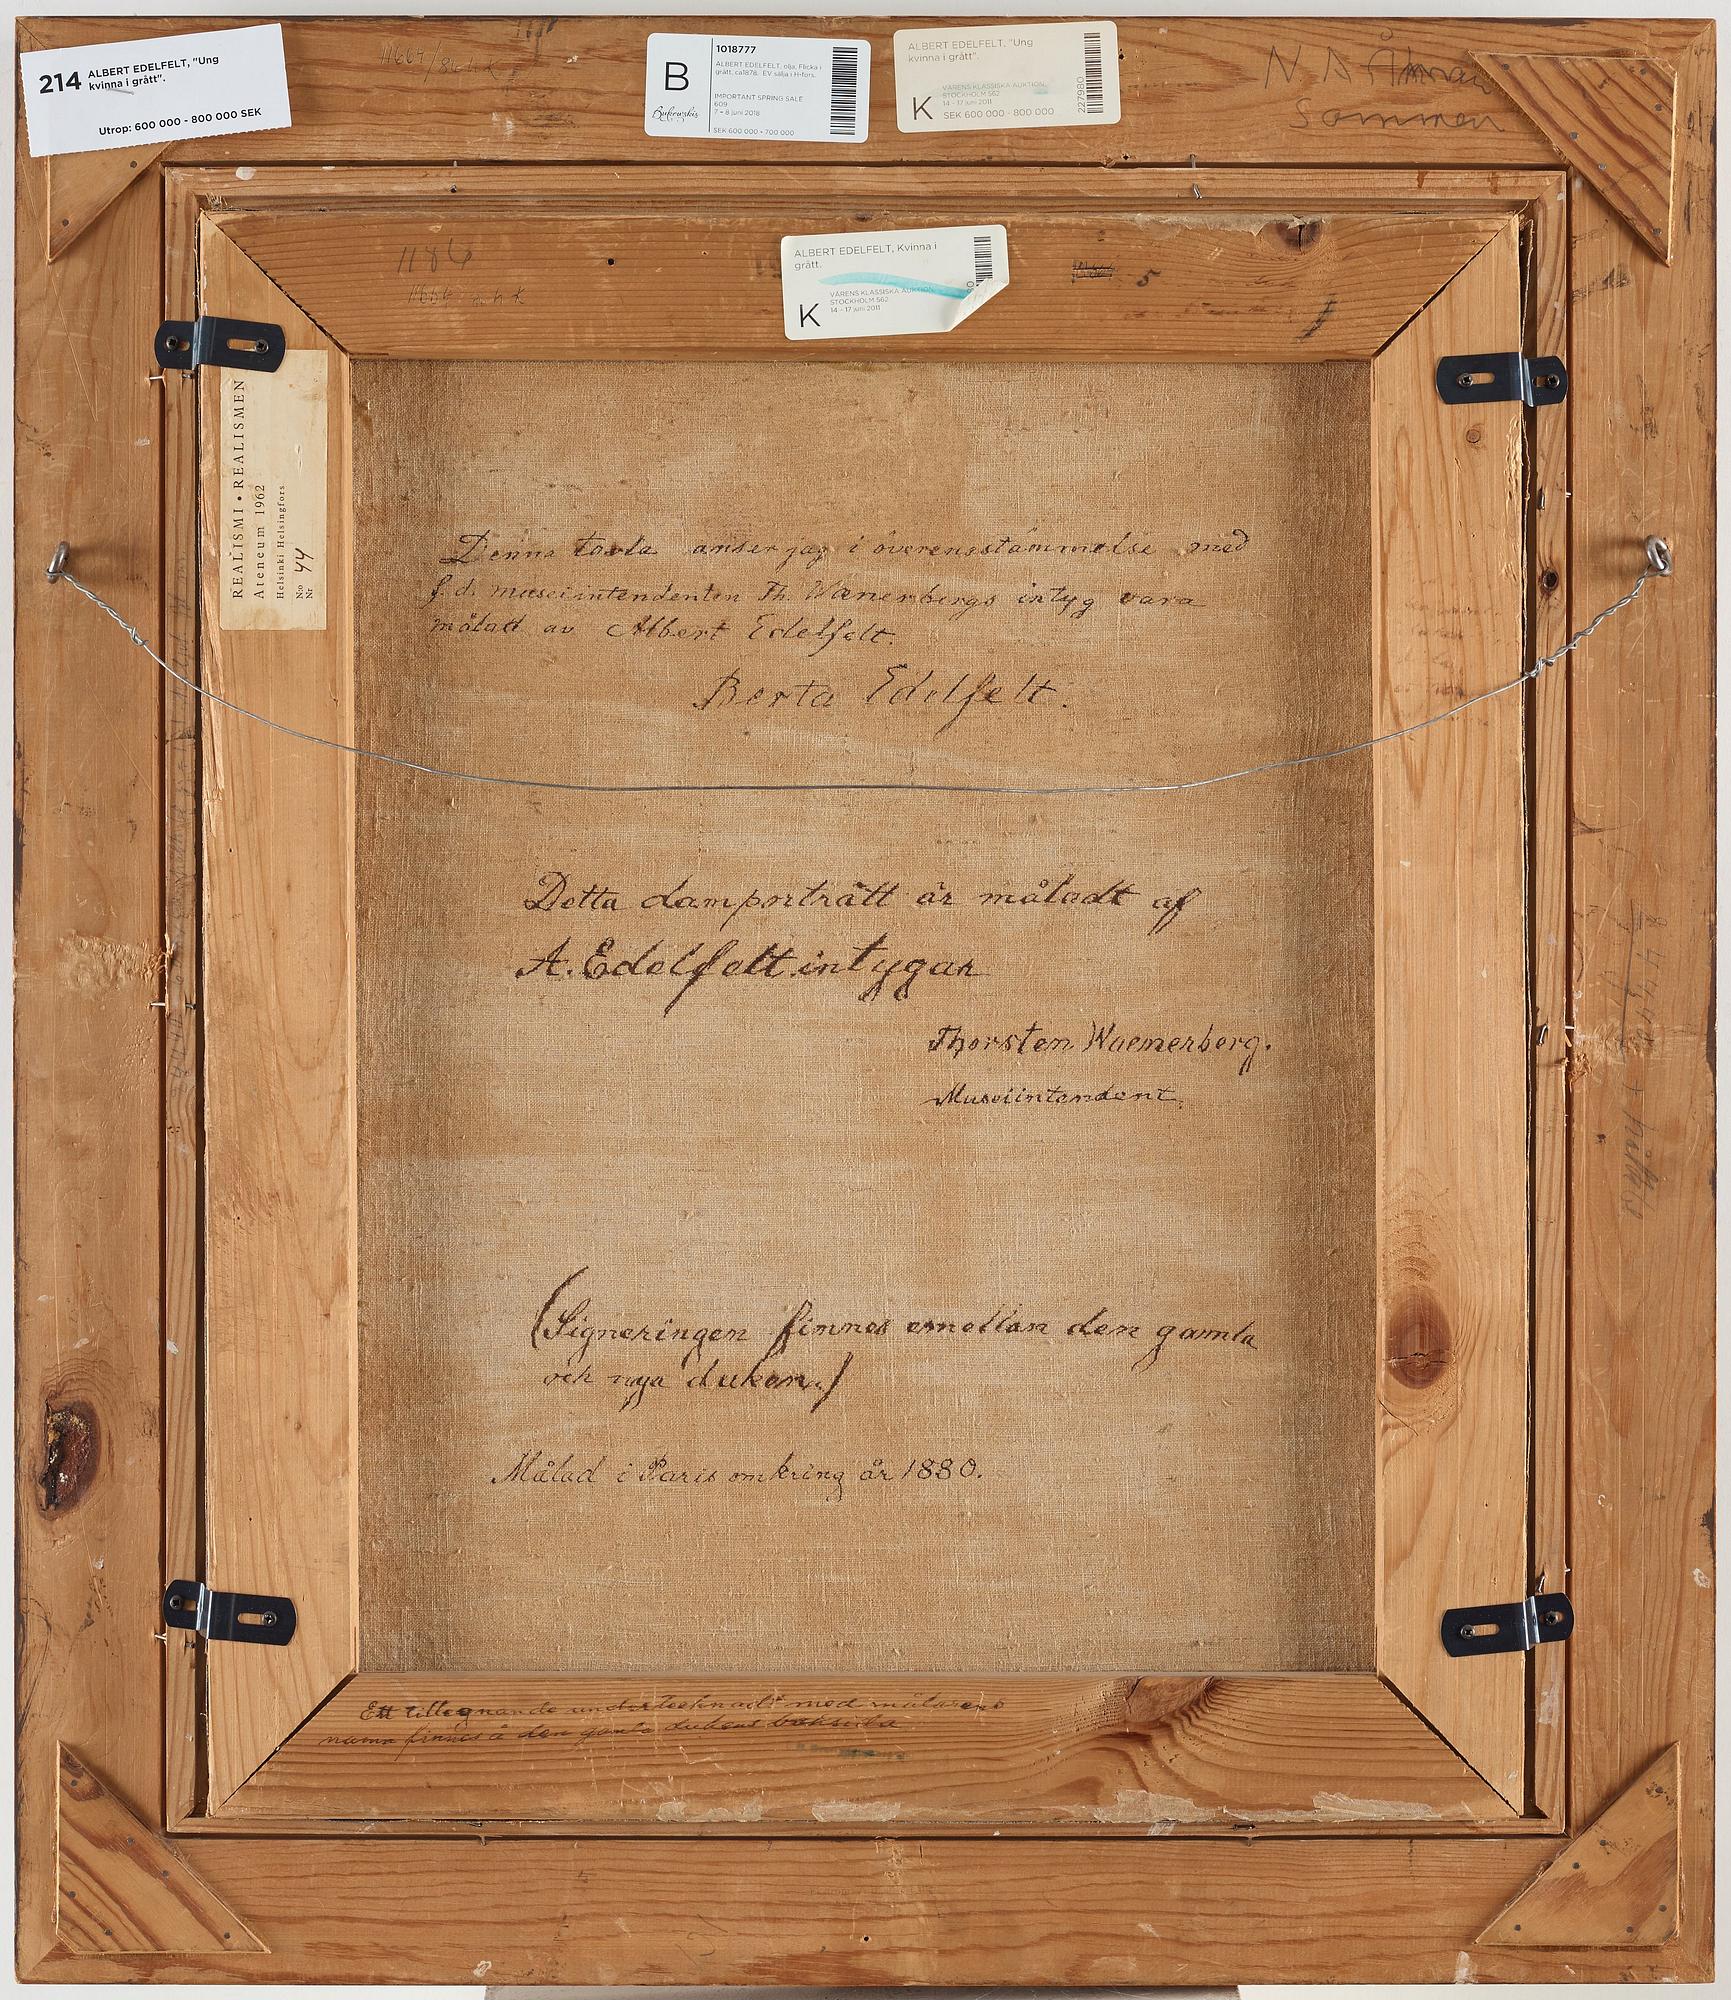 214 ALBERT EDELFELT, "Ung
kvinna i grått".
Utrop: 600 000 - 800 000 SEK
B
Bukowskis
1018777
ALBERT EDELFELT, olja, Flicka i
grått, ca1878. EV sälja i H-fors.
IMPORTANT SPRING SALE
609
7 - 8 juni 2018
SEK 600 000 - 700 000
ALBERT EDELFELT, "Ung
kvinna i grått".
K
VÅRENS KLASSISKA AUKTION,
STOCKHOLM 562
14 - 17 juni 2011
SEK 600 000 - 800 000
227980
Sommen
1186
ALBERT EDELFELT, Kvinna i
grått.
K
VÅRENS KLASSISKA AUKTION,
STOCKHOLM 562
14 - 17 juni 2011
5
REALISMI • REALISMEN
Ateneum 1962
Helsinki Helsingfors
No
Nr 44
Denna tavla anser jag i överensstämmelse med
f.d. museiintendenten Th. Wænerbergs intyg vara
målad av Albert Edelfelt.
Berta Edelfelt.
Detta damporträtt är måladt af
A. Edelfelt intygar
Thorsten Waenerberg.
Museiintendent.
(Signeringen finnes emellan den gamla
och nya duken.)
Målad i Paris omkring år 1880.
Ett tillegnande undertecknadt med målarens
namn finnes å den gamla dukens baksida